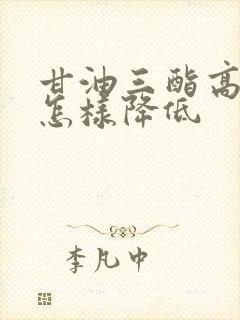 甘油三酯高
怎樣降低
李凡中